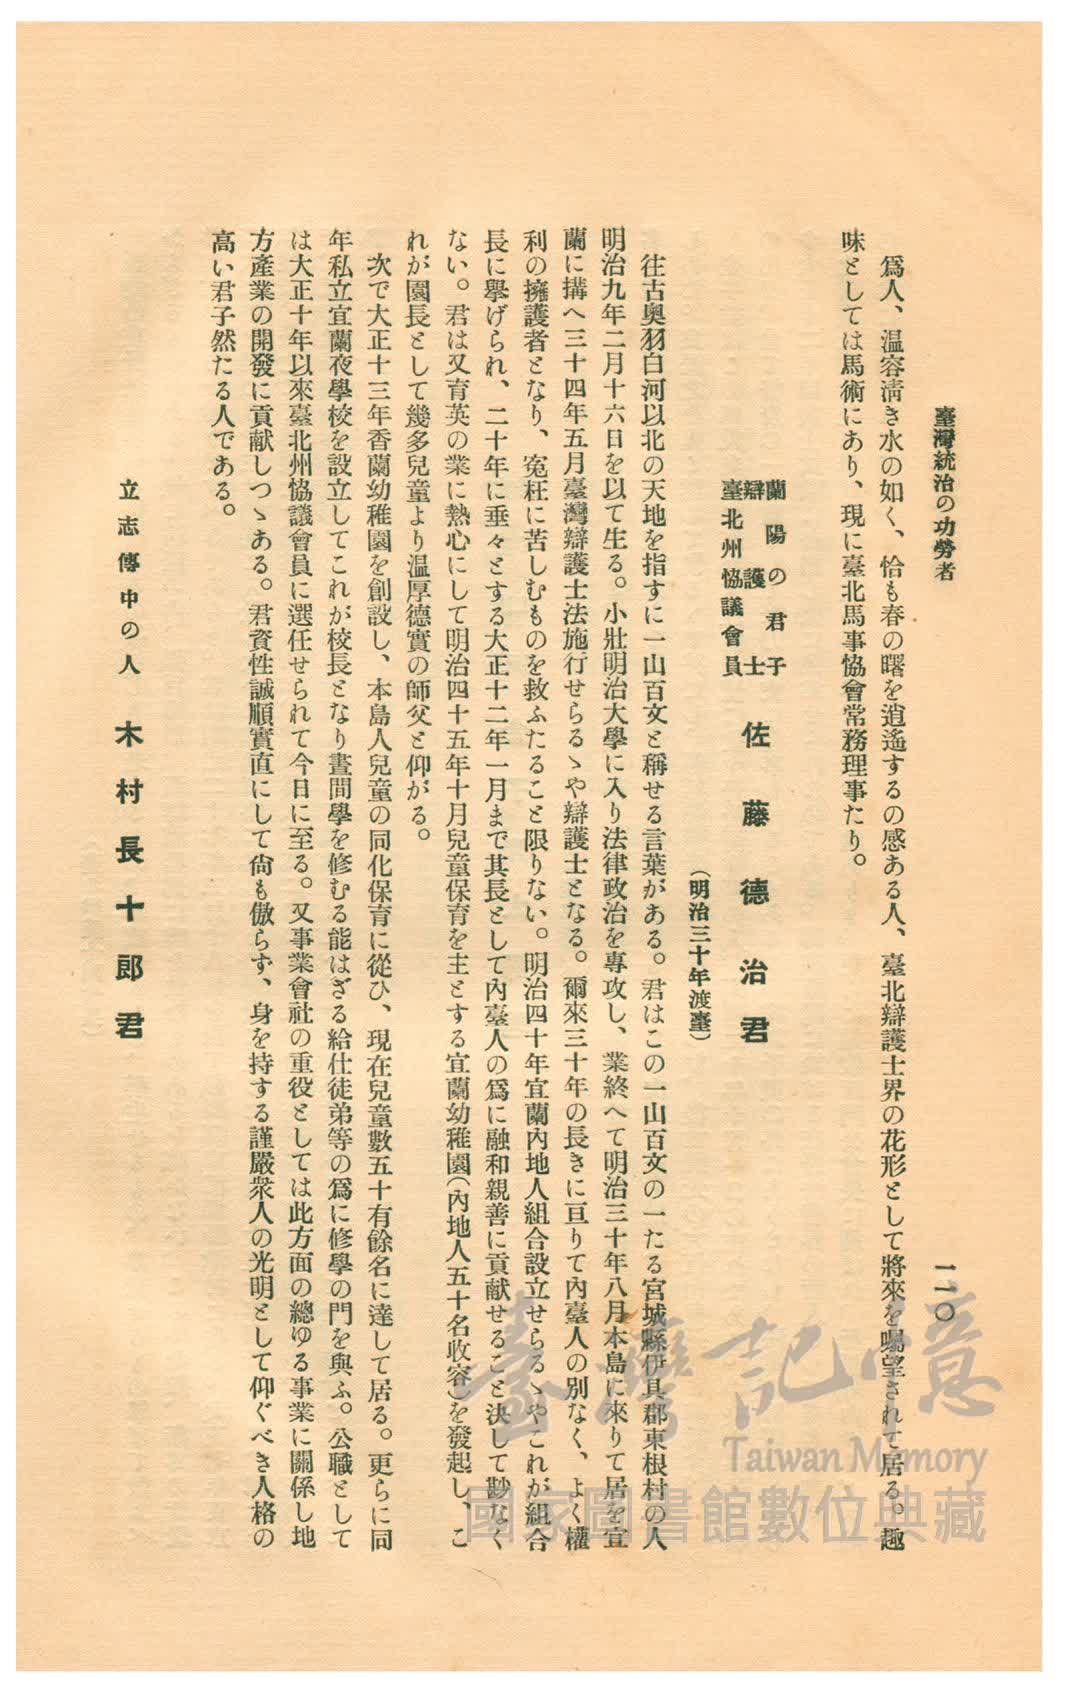 臺灣統治の功勞者
一一〇
爲人、温容淸き水の如く、恰も春の曙を逍遙するの感ある人、臺北辯護士界の花形として將來を囑望されて居る。趣
味としては馬術にあり、現に臺北馬事協會常務理事たり。
蘭陽の君子
辯護士
臺北州協議會員
佐藤德治君
（明治三十年渡臺）
往古奥羽白河以北の天地を指すに一山百文と稱せる言葉がある。君はこの一山百文の一たる宮城縣伊具郡東根村の人
明治九年二月十六日を以て生る。小壯明治大學に入り法律政治を專攻し、業終へて明治三十年八月本島に來りて居を宜
蘭に搆へ三十四年五月臺灣辯護士法施行せらるゝや辯護士となる。爾來三十年の長きに亘りて內臺人の別なく、よく權
利の擁護者となり、寃枉に苦しむものを救ふたること限りない。明治四十年宜蘭內地人組合設立せらるゝやこれが組合
長に擧げられ、二十年に垂々とする大正十二年一月まで其長として內臺人の爲に融和親善に貢献せること決して尠なく
ない。君は又育英の業に熱心にして明治四十五年十月兒童保育を主とする宜蘭幼稚園（內地人五十名收容）を發起し、こ
れが園長として幾多兒童より温厚德實の師父と仰がる。
次で大正十三年香蘭幼稚園を創設し、本島人兒童の同化保育に從ひ、現在兒童數五十有餘名に達して居る。更らに同
年私立宜蘭夜學校を設立してこれが校長となり晝間學を修むる能はざる給仕徒弟等の爲に修學の門を與ふ。公職として
は大正十年以來臺北州協議會員に選任せられて今日に至る。又事業會社の重役としては此方面の總ゆる事業に關係し地
方產業の開發に貢献しつゝある。君資性誠順實直にして尙も傲らず、身を持する謹嚴衆人の光明として仰ぐべき人格の
高い君子然たる人である。
立志傳中の人 木村長十郎君
臺灣記憶
Taiwan Memory
國家圖書館數位典藏